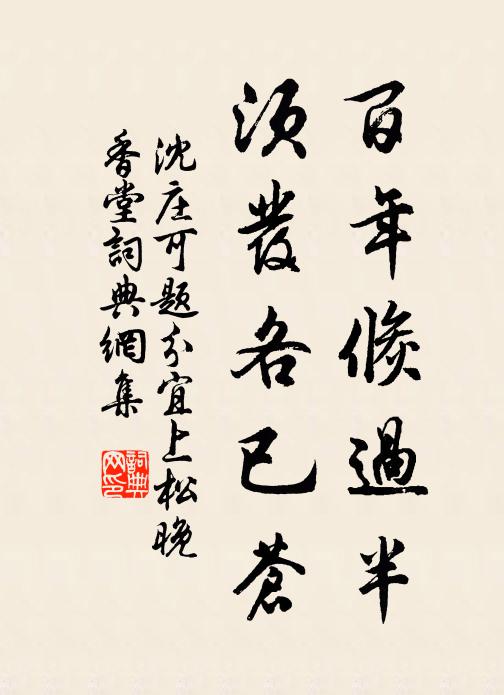 百年倐過半
須髮各已蒼
沈庄可題分宜上松晚
香堂詞典網集
詞典网印